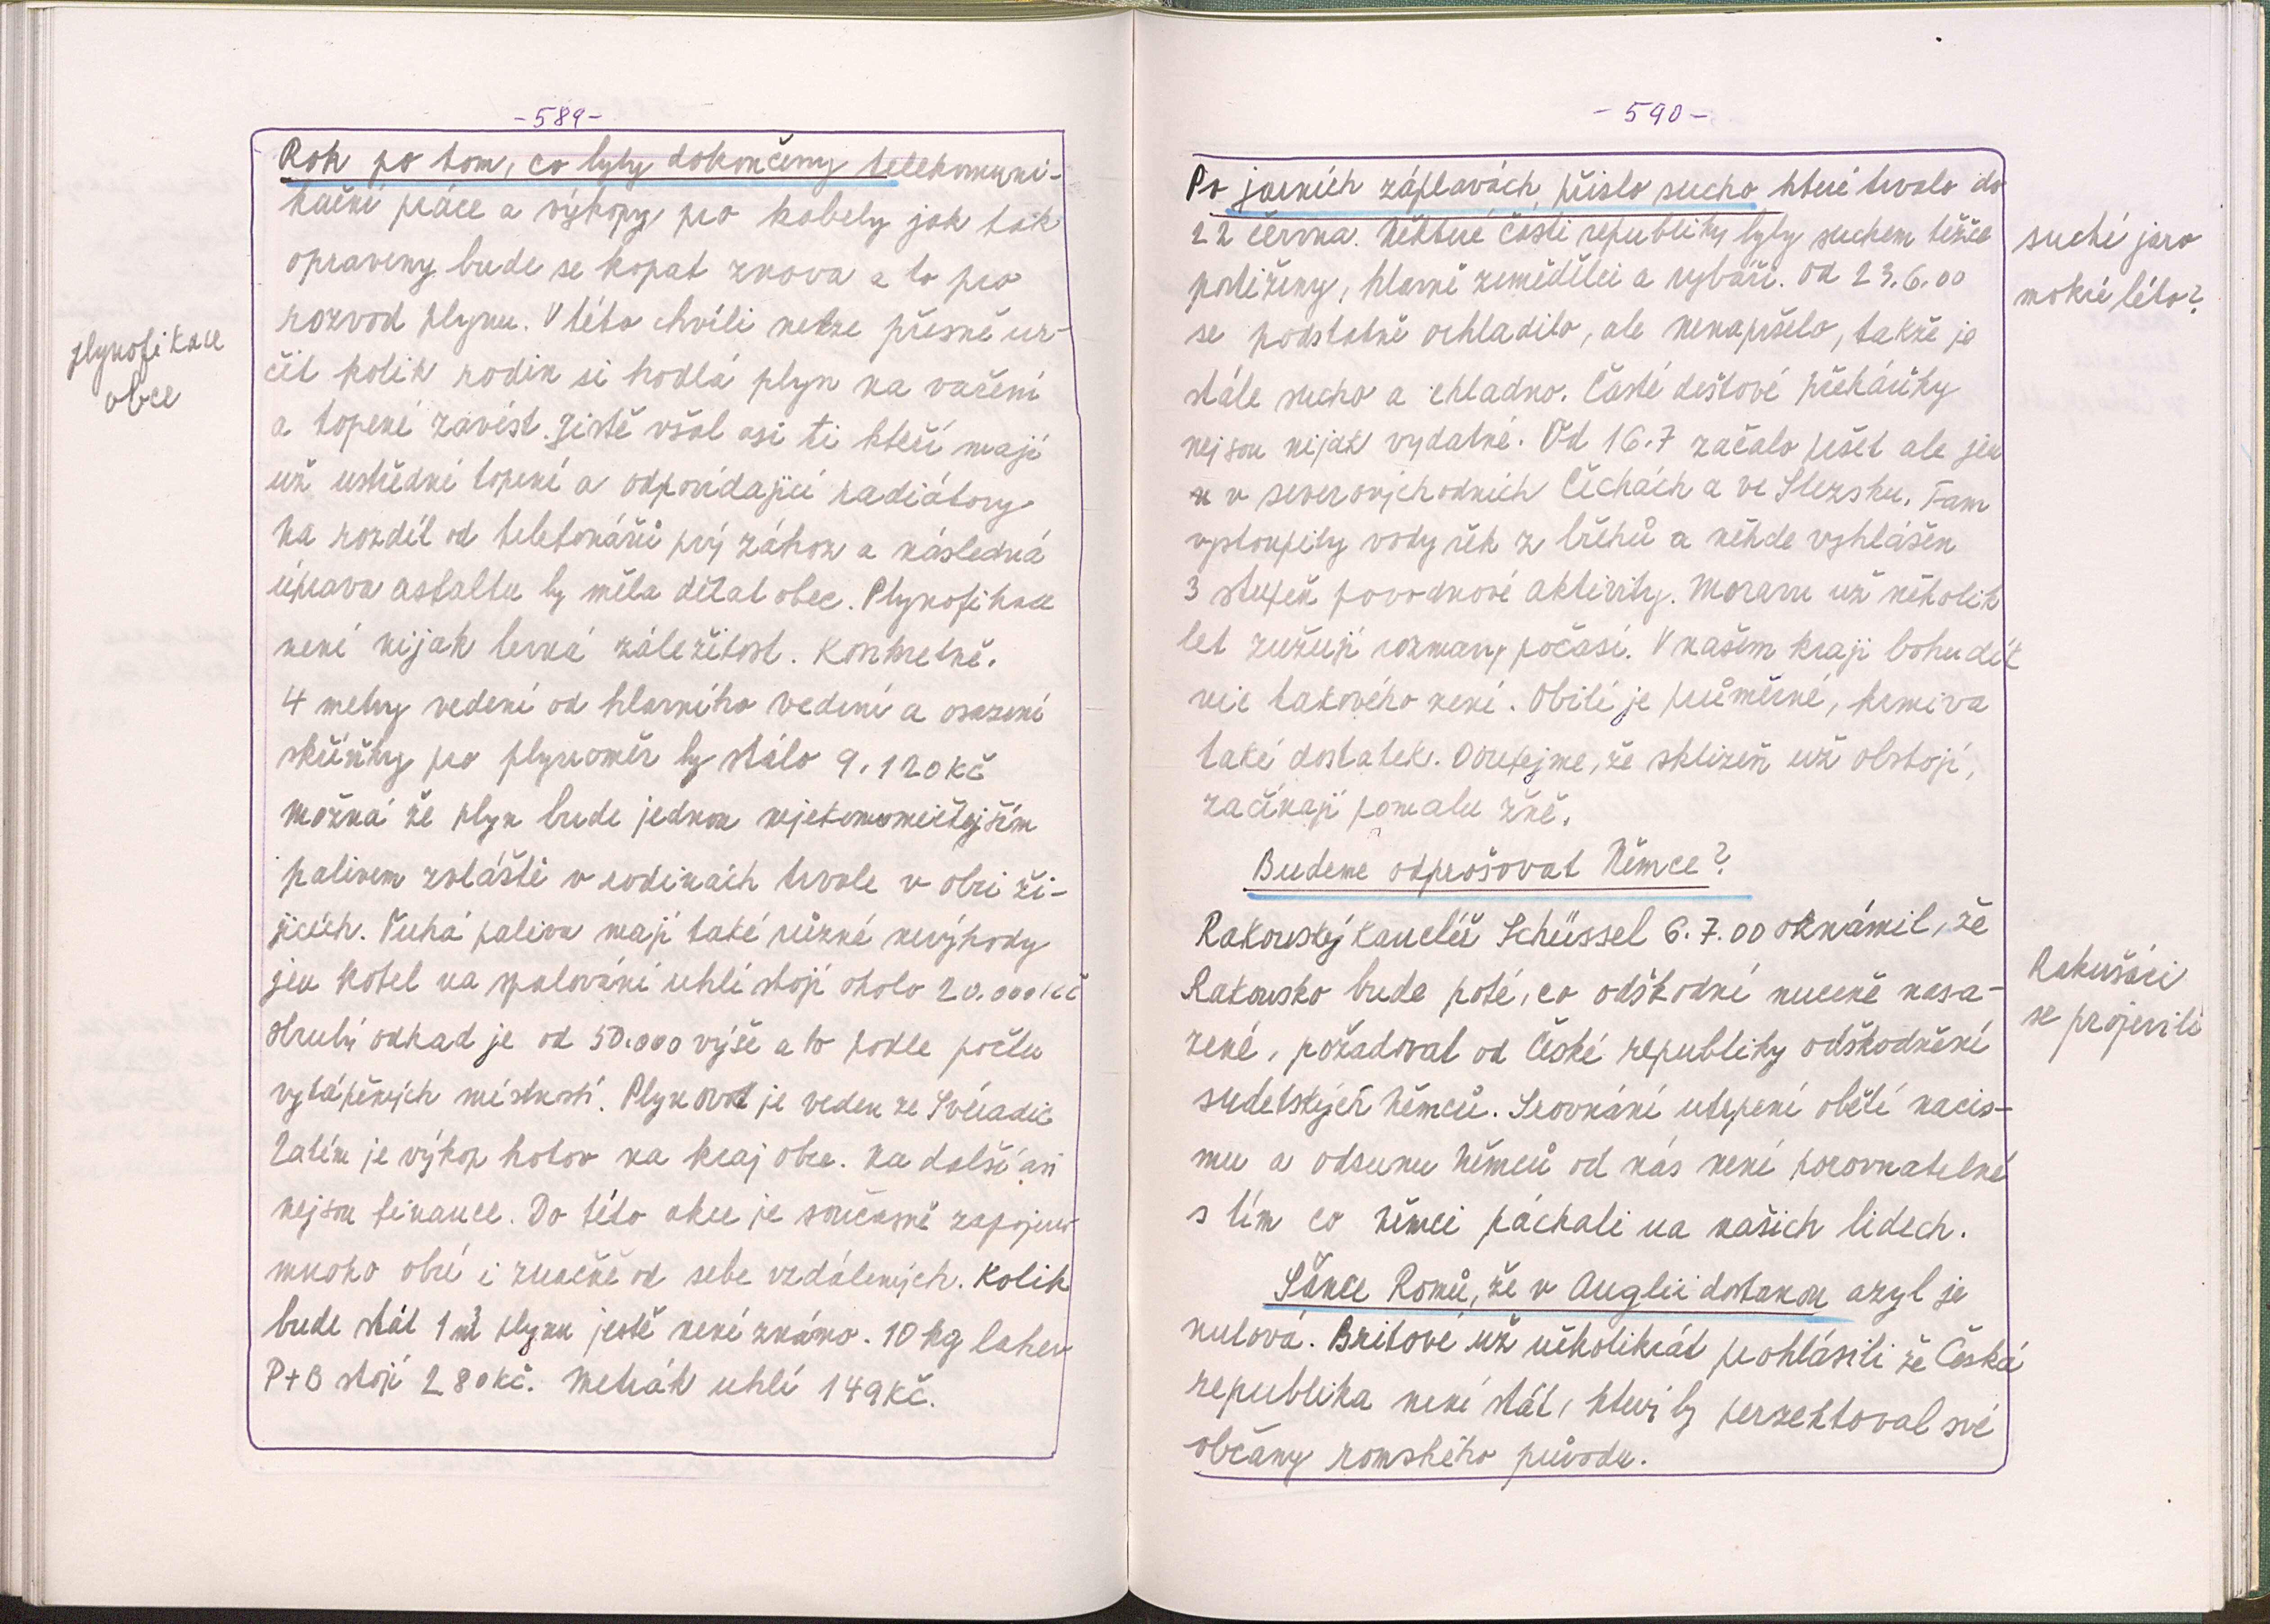 -589-
Rok po tom, co byly dokončeny telekomuni-
kační práce a výkopy pro kabely jak tak
opraveny bude se kopat znova a to pro
rozvod plynu. V této chvíli nelze přesně ur-
čit kolik rodin si hodlá plyn na vaření
a topení zavést. Jistě však asi ti kteří mají
už ustřední topení a odpovídající radiátory
Na rozdíl od telefonářů prý zához a následná
úprava asfaltu by měla dělat obec. Plynofikace
není nijak levná záležitost. Konkretně.
4 metry vedení od hlavního vedení a osazení
skříňky pro plynoměr by stálo 9.120 Kč
Možná že plyn bude jednou nejekonomičtějším
palivem zvláště v rodinách trvale v obci ži-
jících. Tuhá paliva mají také různé nevýhody
jen kotel na spalování uhlí stojí okolo 20.000 Kč
Hrubý odhad je od 50.000 výše a to podle počtu
vytápěných místností. Plynovod je veden ze Svéradic
Zatím je výkop hotov na kraj obce. Na další asi
nejsou finance. Do této akce je současně zapojeno
mnoho obcí i značně od sebe vzdálených. Kolik
bude stát 1 m³ plynu jestě není známo. 10 kg lahev
P+B stojí 280 Kč. Metrák uhlí 149 Kč.
plynofikace
obce
-590-
Po jarních záplavách, přišlo sucho které trvalo do
22 června. Některé části republiky byly suchem těžce
postiženy, hlavně zemědělci a rybáři. Od 23.6.00
se podstatně ochladilo, ale nenapršelo, takže je
stále sucho a chladno. Časté deštové přeháňky
nejsou nijak vydatné. Od 16.7 začalo pršet ale jen
v severovýchodních Čechách a ve Slezsku. Tam
vystoupily vody řek z břehů a někde vyhlášen
3 stupeň povodnové aktivity. Moravu už několik
let zužují rozmary počasí. V našem kraji bohudík
nic takového není. Obilí je průměrné, krmiva
také dostatek. Doufejme, že sklizeň už obstojí,
začínají pomalu žně.
Budeme odprošovat Němce?
Rakouský kancléř Schüssel 6.7.00 oznámil, že
Rakousko bude poté, co odškodní nuceně nasa-
zené, požadovat od České republiky odškodnění
sudetských němců. Srovnání utrpení obětí nacis-
mu a odsunu Němců od nás není porovnatelné
s tím co němci páchali na našich lidech.
Šance Romů, že v Anglii dostanou azyl je
nulová. Britové už několikrát prohlásili že Česká
republika není stát, který by perzektoval své
občany romského původu.
suché jaro
mokré léto?
Rakušáci
se projevili